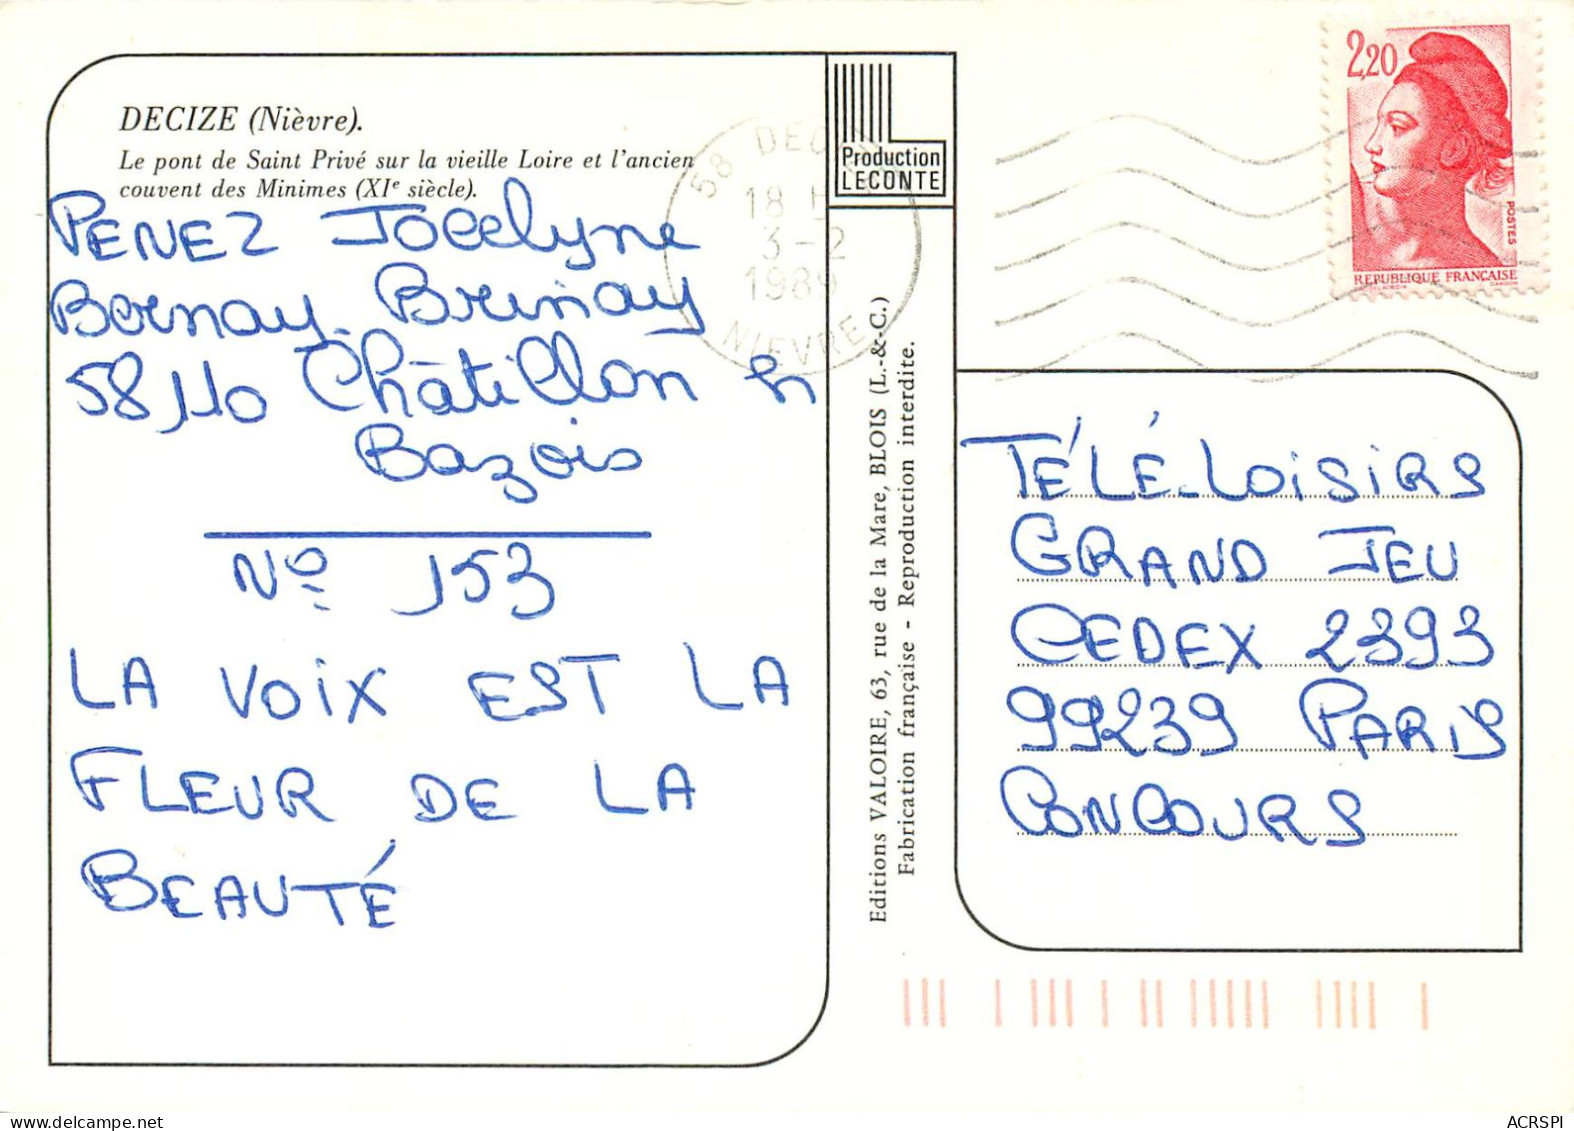 DECIZE (Nièvre).
Le pont de Saint Privé sur la vieille Loire et l'ancien
couvent des Minimes (XIe siècle).
PENEZ Jocelyne
Bernay. Brinay
58110 Châtillon en
Bazois
No 153
LA VOIX EST LA
FLEUR DE LA
BEAUTÉ
Production
LECONTE
58 DECIZE
18 H
3-2
1989
NIEVRE
Editions VALOIRE, 63, rue de la Mare, BLOIS (L.-&-C.)
Fabrication française - Reproduction interdite.
2,20
POSTES
REPUBLIQUE FRANÇAISE
TÉLÉ-LOISIRS
GRAND JEU
CEDEX 2393
99239 PARIS
CONCOURS
ACRSPI